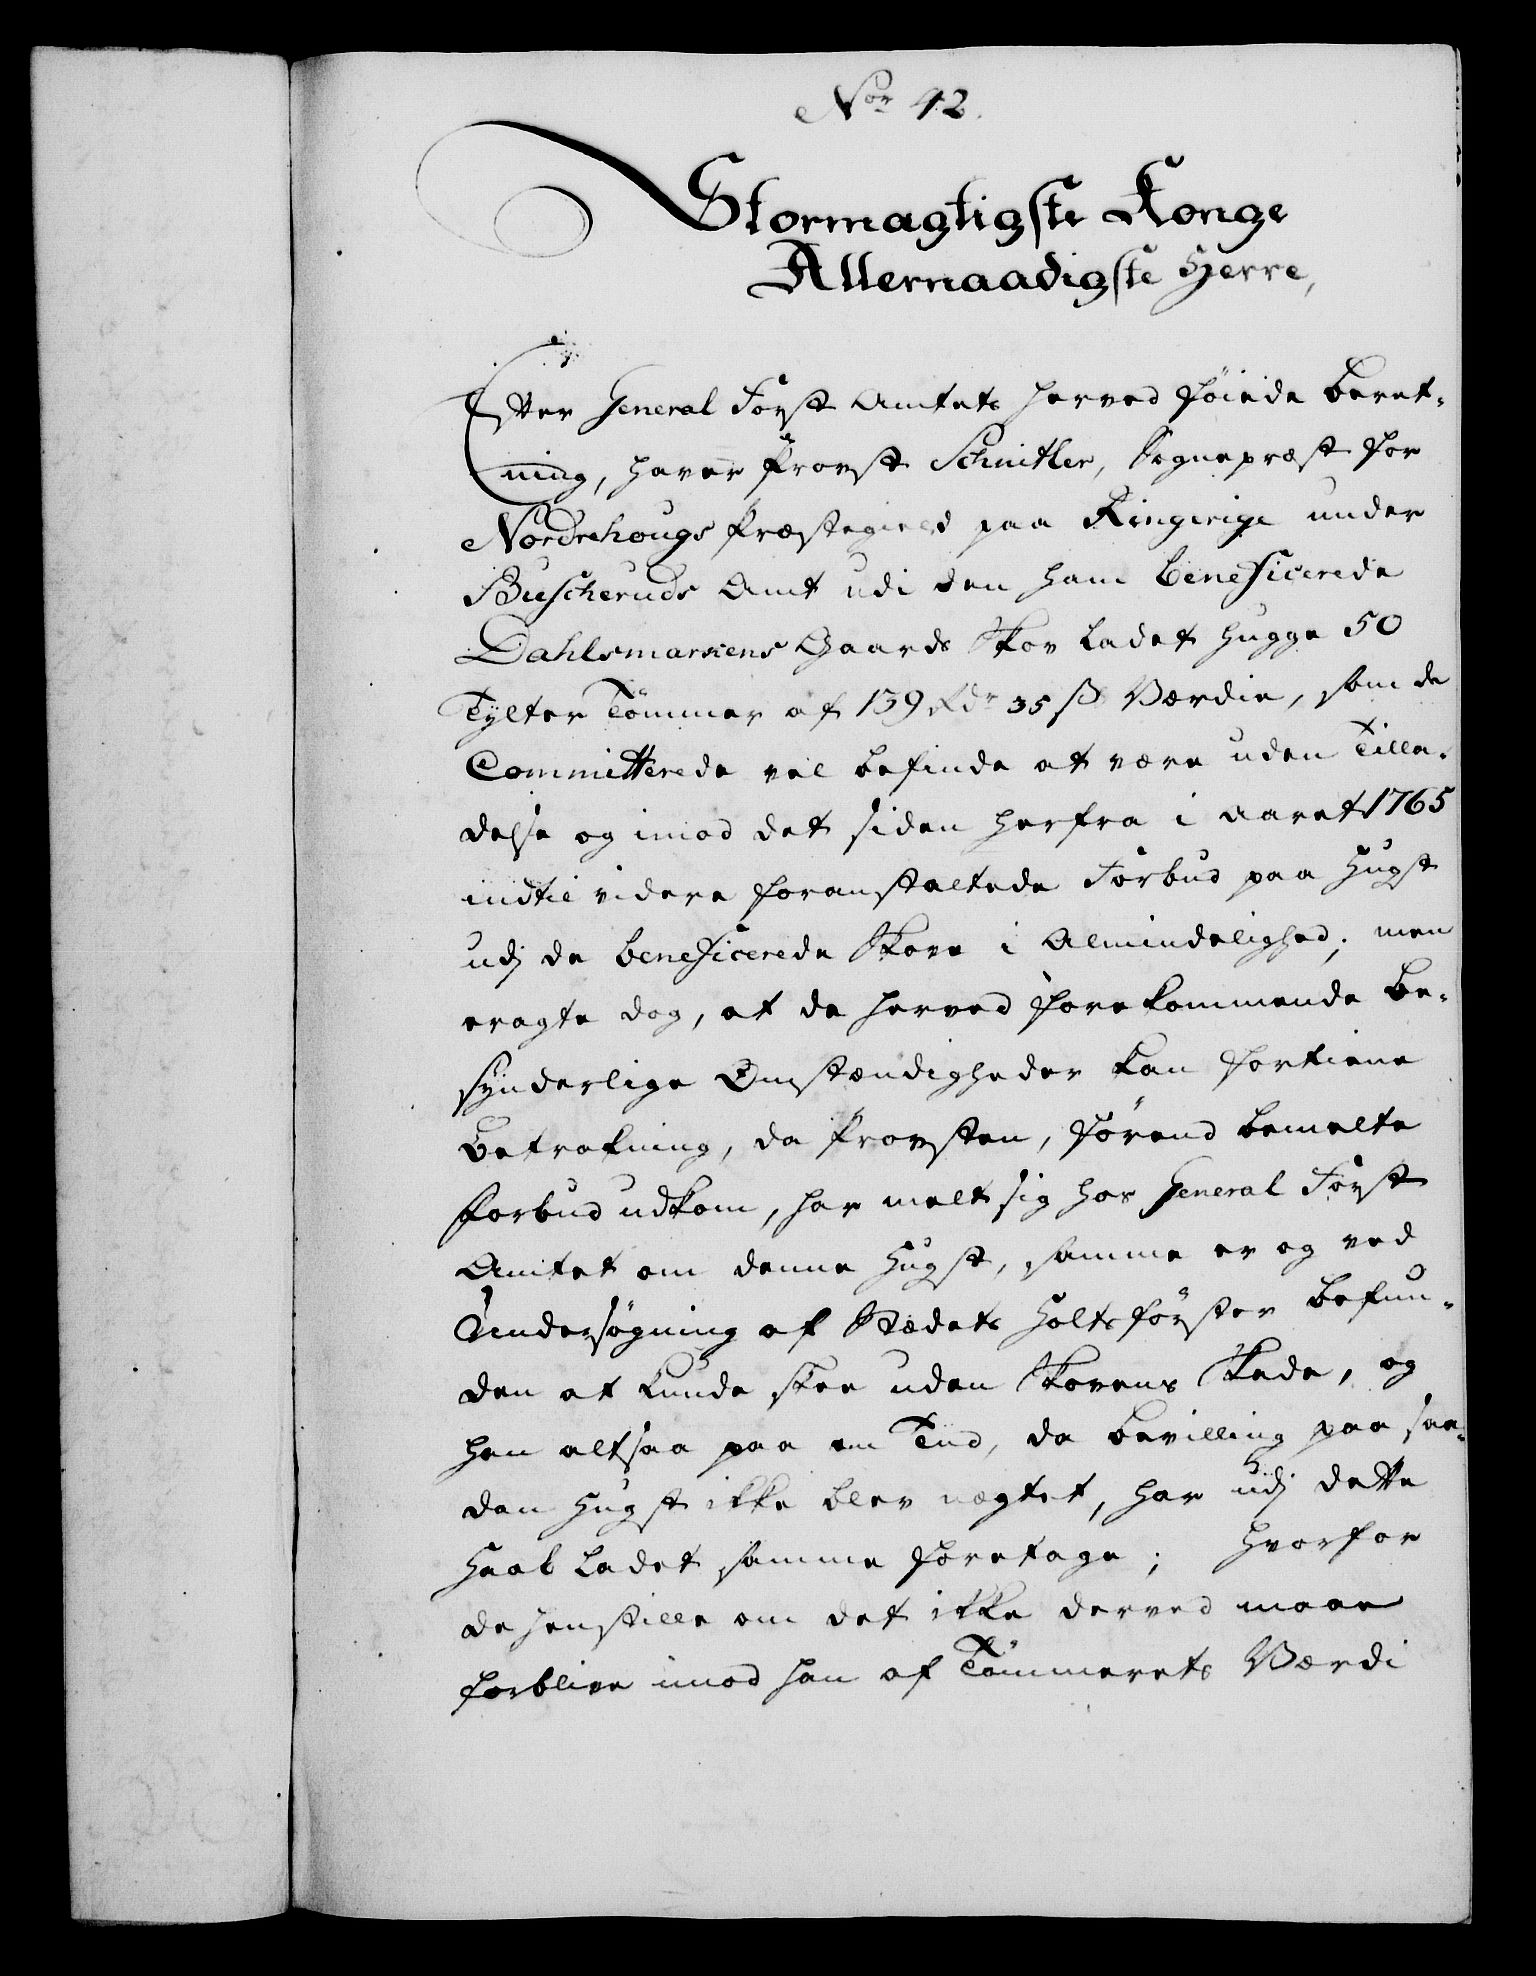 Nor 42.
Stormagtigste Konge
Allernaadigste Herre,
Efter General Forst Amtets herved föiede Beret-
ning, haver Provst Schnitler, Sognepræst for
Nordrehougs Præstegield paa Ringerige under
Buscheruds Amt udi den ham beneficerede
Dahlsmarkens Gaards Skov ladet hugge 50
Tylter Tömmer af 139 Rdr 35 ß Værdie, som de
Committerede vel befinde at være uden Tilla-
delse og imod det siden herfra i aaret 1765
indtil videre foranstaltede Forbud paa Hugst
udj de beneficerede Skove i Almindelighed; men
eragte dog, at de herved forekommende be-
synderlige Omstændigheder kan fortiene
Betrakning, da Provsten, förend bemelte
Forbud udkom, har melt sig hos General Forst
Amtet om denne Hugst, samme er og ved
Undersögning af Stædets Holtsförster befun-
den at kunde skee uden Skovens Skade, og
han altsaa paa en Tiid, da Bevilling paa saa-
dan Hugst ikke blev nægtet, har udj dette
Haab ladet samme foretage; Hvorfor
de henstille om det ikke derved maae
forblive imod han af Tömmerets Værdi